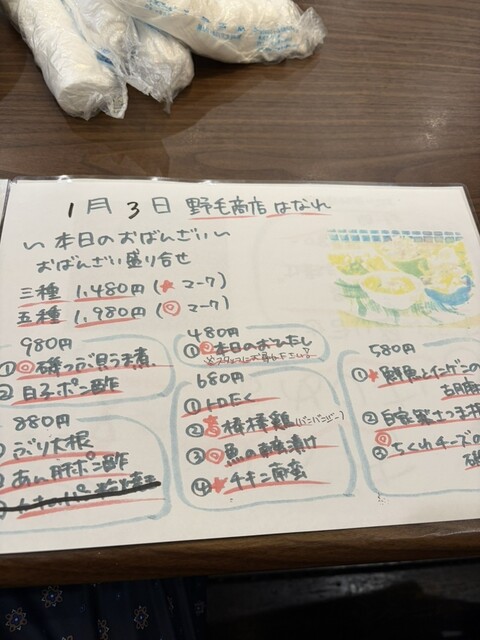 1月3日 野毛商店 はなれ
いい 本日のおばんざい いい
おばんざい盛り合せ
三種 1,480円 (★マーク)
五種 1,980円 (◎マーク)
980円
①◎磯つぶ貝うま煮
②白子ポン酢
880円
ぶり大根
あん肝ポン酢
480円
①◎本日のおひたし
680円
①トロたく
②棒棒鶏(バンバンジー)
③◎魚の南蛮漬け
④★チキン南蛮
580円
①★鮮魚とインゲンの
胡麻
②自家製さつま
◎ちくわチーズの
磯